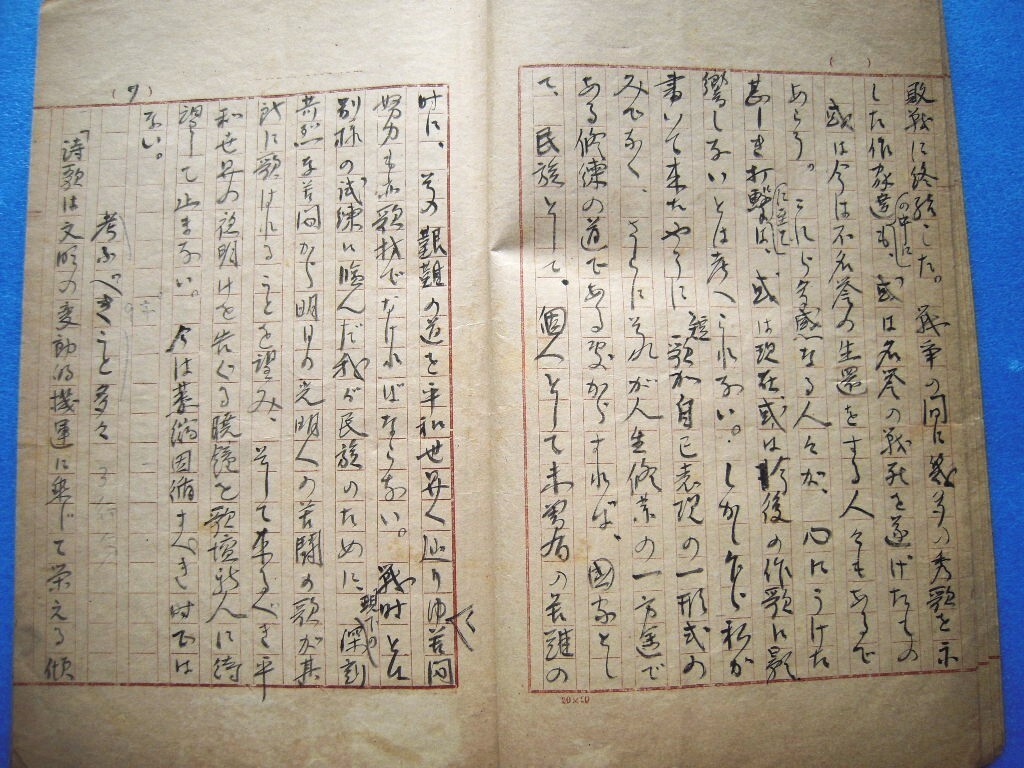 敗戦に終結した。戦争の間に幾多の秀歌を示
した作家達の中にも、或は名誉の戦死を遂げたもの
或は今は不名誉の生還をする人々もあるで
あらう。これら多感なる人々が、心にうけた
甚しき打撃は、或は現在或は今後の作歌に影
響しないとは考へられない。しかし乍ら私が
書いて来たやうに短歌が自己表現の一形式の
みでなく、さらにそれが人生修業の一方途で
ある修練の道であるのだからすれば、国家とし
て、民族として、個人として未曽有の苦難の
( 7 )
時に、その艱難の道を平和世界へ辿りゆく苦悶
努力も亦歌材でなければならない。戦時とは
別様の試練に臨んだ我が民族のために、現下の深刻
苛烈な苦悶から明日の光明への苦闘の歌が其
処に歌はれることを望み、そして来るべき平
和世界の夜明けを告ぐる暁鐘を歌壇新人に待
望して止まない。今は萎縮因循すべき時では
ない。
考ふべきこと多々
「詩歌は文明の変動的機運に乗じて栄える傾
20×20